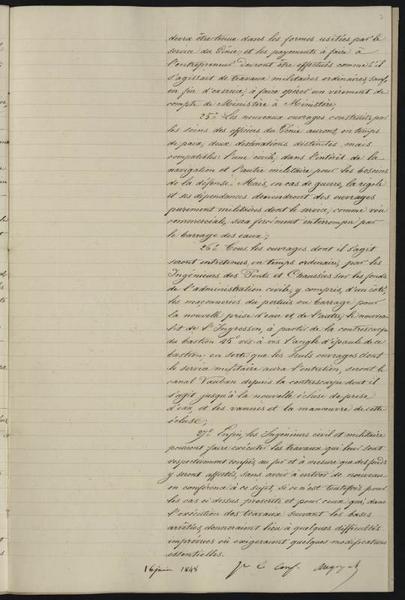 devra être tenue dans les formes usitées par le
service du Génie; et les payements à faire à
l'entrepreneur devront être effectués comme s'il
s'agissait de travaux militaires ordinaires sauf,
en fin d'exercice, à faire opérer un virement de
compte de Ministère à Ministère;
25.° Les nouveaux ouvrages construits par
les soins des officiers du Génie auront, en temps
de paix, deux destinations distinctes, mais
compatibles: l'une civile, dans l'intérêt de la
navigation et l'autre militaire pour les besoins
de la défense. Mais, en cas de guerre, la rigole
et ses dépendances deviendront des ouvrages
purement militaires dont le service, comme voie
commerciale, sera forcément interrompu par
le barrage des eaux;
26.° Tous les ouvrages dont il s'agit
seront entretenus, en temps ordinaire, par les
Ingénieurs des Ponts et Chaussées sur les fonds
de l'administration civile, y compris, d'un côté,
les maçonneries du pertuis ou barrage pour
la nouvelle prise d'eau et de l'autre, le nouveau
lit de l' à partir de la contrescarpe
du bastion 45 vis à vis l'angle d'épaule de ce
bastion: en sorte que les seuls ouvrages dont
le service militaire aura l'entretien, seront le
canal Vauban depuis la contrescarpe dont il
s'agit jusqu'à la nouvelle écluse de prise
d'eau, et les vannes et la manœuvre de cette
écluse;
27.° Enfin, les Ingénieurs civil et militaire
pourront faire exécuter les travaux qui leur sont
respectivement confiés au fur et à mesure que des fonds
y seront affectés, sans avoir à entrer de nouveau
en conférence à ce sujet, si ce n'est toutefois pour
les cas ci dessus prescrits et pour ceux qui, dans
l'exécution des travaux suivant les bases
arrêtées, donneraient lieu à quelques difficultés
imprévues ou exigeraient quelques modifications
essentielles.
16 juin 1848